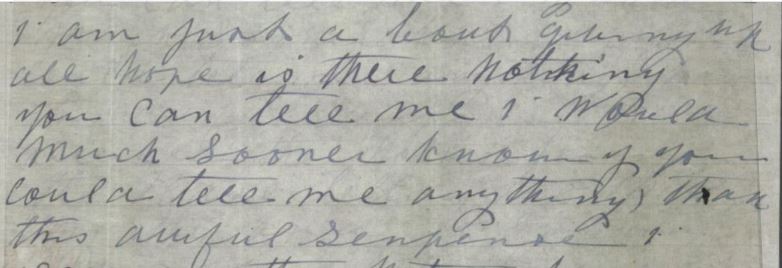 i am just a bout giving up
all hope is there nothing
you can tell me i would
much sooner know if you
could tell me anything than
this awful senpense i